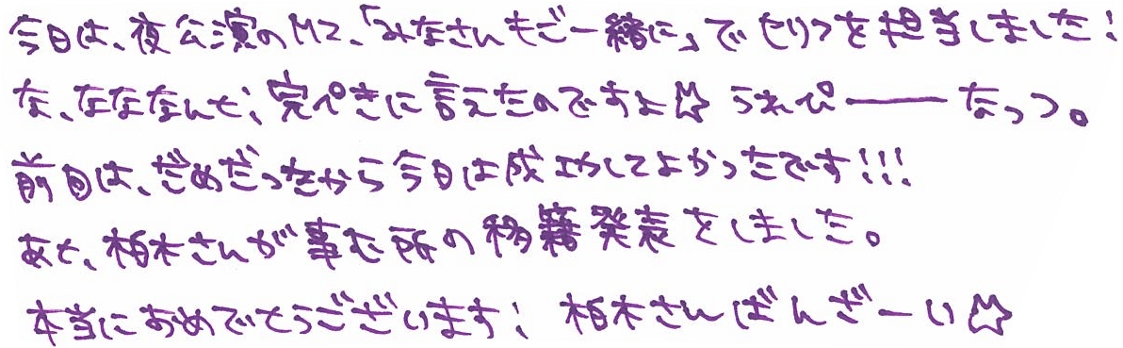 今日は、夜公演のMC、「みなさんもご一緒に」でセリフを担当しました!
な、なななんと、完ぺきに言えたのですよ☆ うれぴーーなっつ。
前回は、だめだったから今日は成功してよかったです!!!
あと、柏木さんが事ム所の移籍発表をしました。
本当におめでとうございます! 柏木さんばんざーい☆